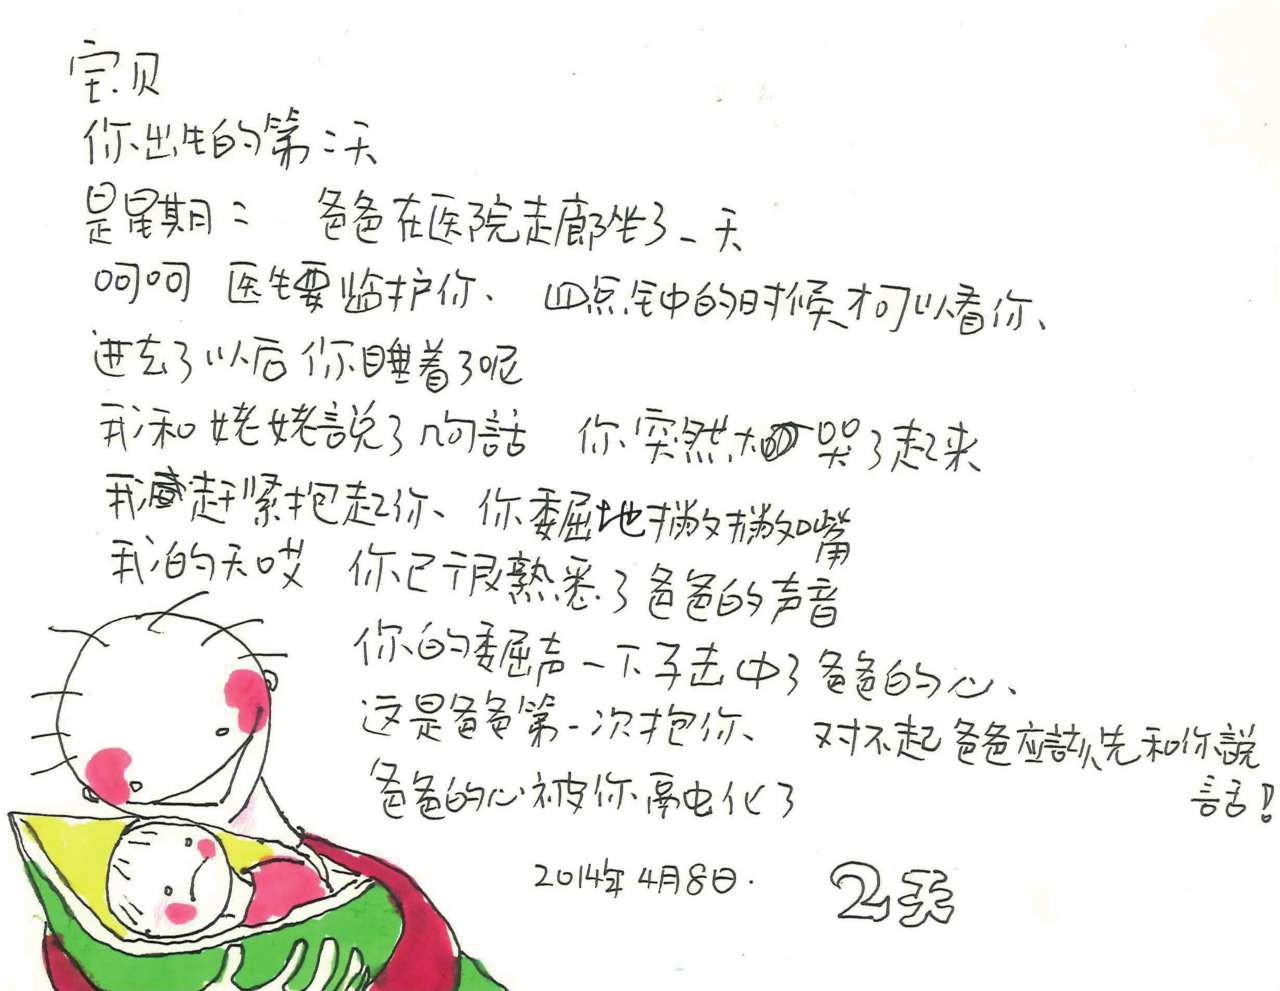 宝贝
你出生的第二天
是星期二 爸爸在医院走廊坐了一天
呵呵 医生要监护你、四点钟的时候才可以看你、
进去了以后你睡着了呢
我和姥姥説了几句話 你突然大哭了起来
我赶紧抱起你、你委屈地撇撇嘴
我的天哎 你已很熟悉了爸爸的声音
你的委屈声一下子击中了爸爸的心、
这是爸爸第一次抱你、 对不起爸爸应該先和你説
話!
爸爸的心被你融化了
2014年4月8日.
2天